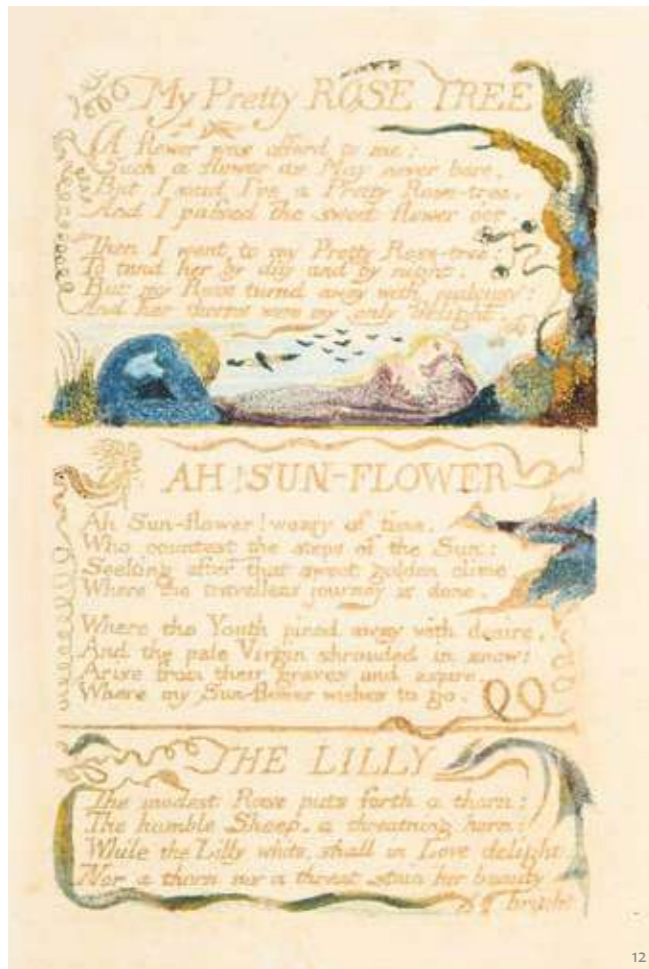 My Pretty ROSE TREE
A flower was offerd to me:
Such a flower as May never bore.
But I said I've a Pretty Rose-tree,
And I passed the sweet flower o'er.
Then I went to my Pretty Rose-tree:
To tend her by day and by night.
But my Rose turnd away with jealousy:
And her thorns were my only delight.
AH! SUN-FLOWER
Ah Sun-flower! weary of time.
Who countest the steps of the Sun:
Seeking after that sweet golden clime
Where the travellers journey is done.
Where the Youth pined away with desire,
And the pale Virgin shrouded in snow:
Arise from their graves and aspire,
Where my Sun-flower wishes to go.
THE LILLY
The modest Rose puts forth a thorn:
The humble Sheep. a threatning horn:
While the Lilly white, shall in Love delight
Nor a thorn nor a threat stain her beauty
bright
12